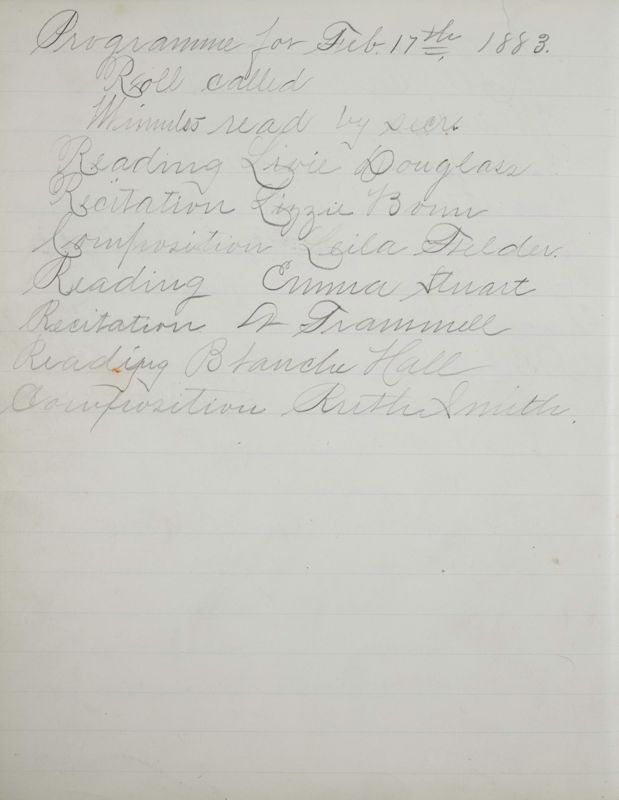 Programme for Feb. 17th 1883.
Roll called
Minutes read by secr.
Reading Livie Douglass
Recitation Lizzie Bonn
Composition Leila Fielder.
Reading Emma Stuart
Recitation A Trammell
Reading Blanche Hall
Composition Ruth Smith.